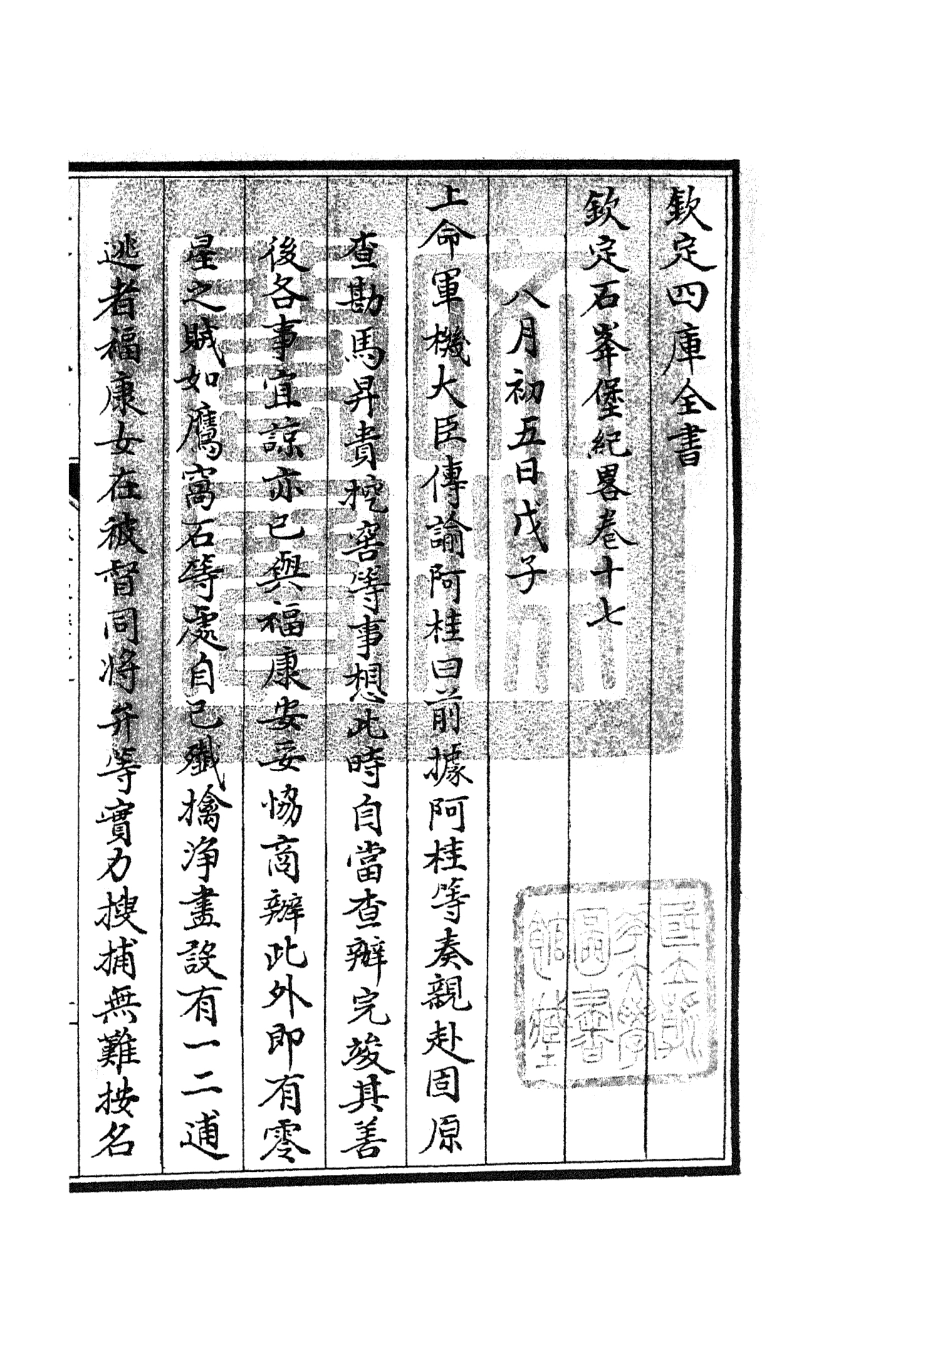 欽定四庫全書
欽定石峯堡紀畧卷十七
八月初五日戊子
上命軍機大臣傳諭阿桂曰前據阿桂等奏親赴固原
查勘馬昇貴挖窖等事想此時自當查辦完竣其善
後各事宜諒亦已與福康安妥協商辦此外即有零
星之賊如鷹窩石等處自已殲擒淨盡設有一二逋
逃者福康安在彼督同將弁等實力搜捕無難按名